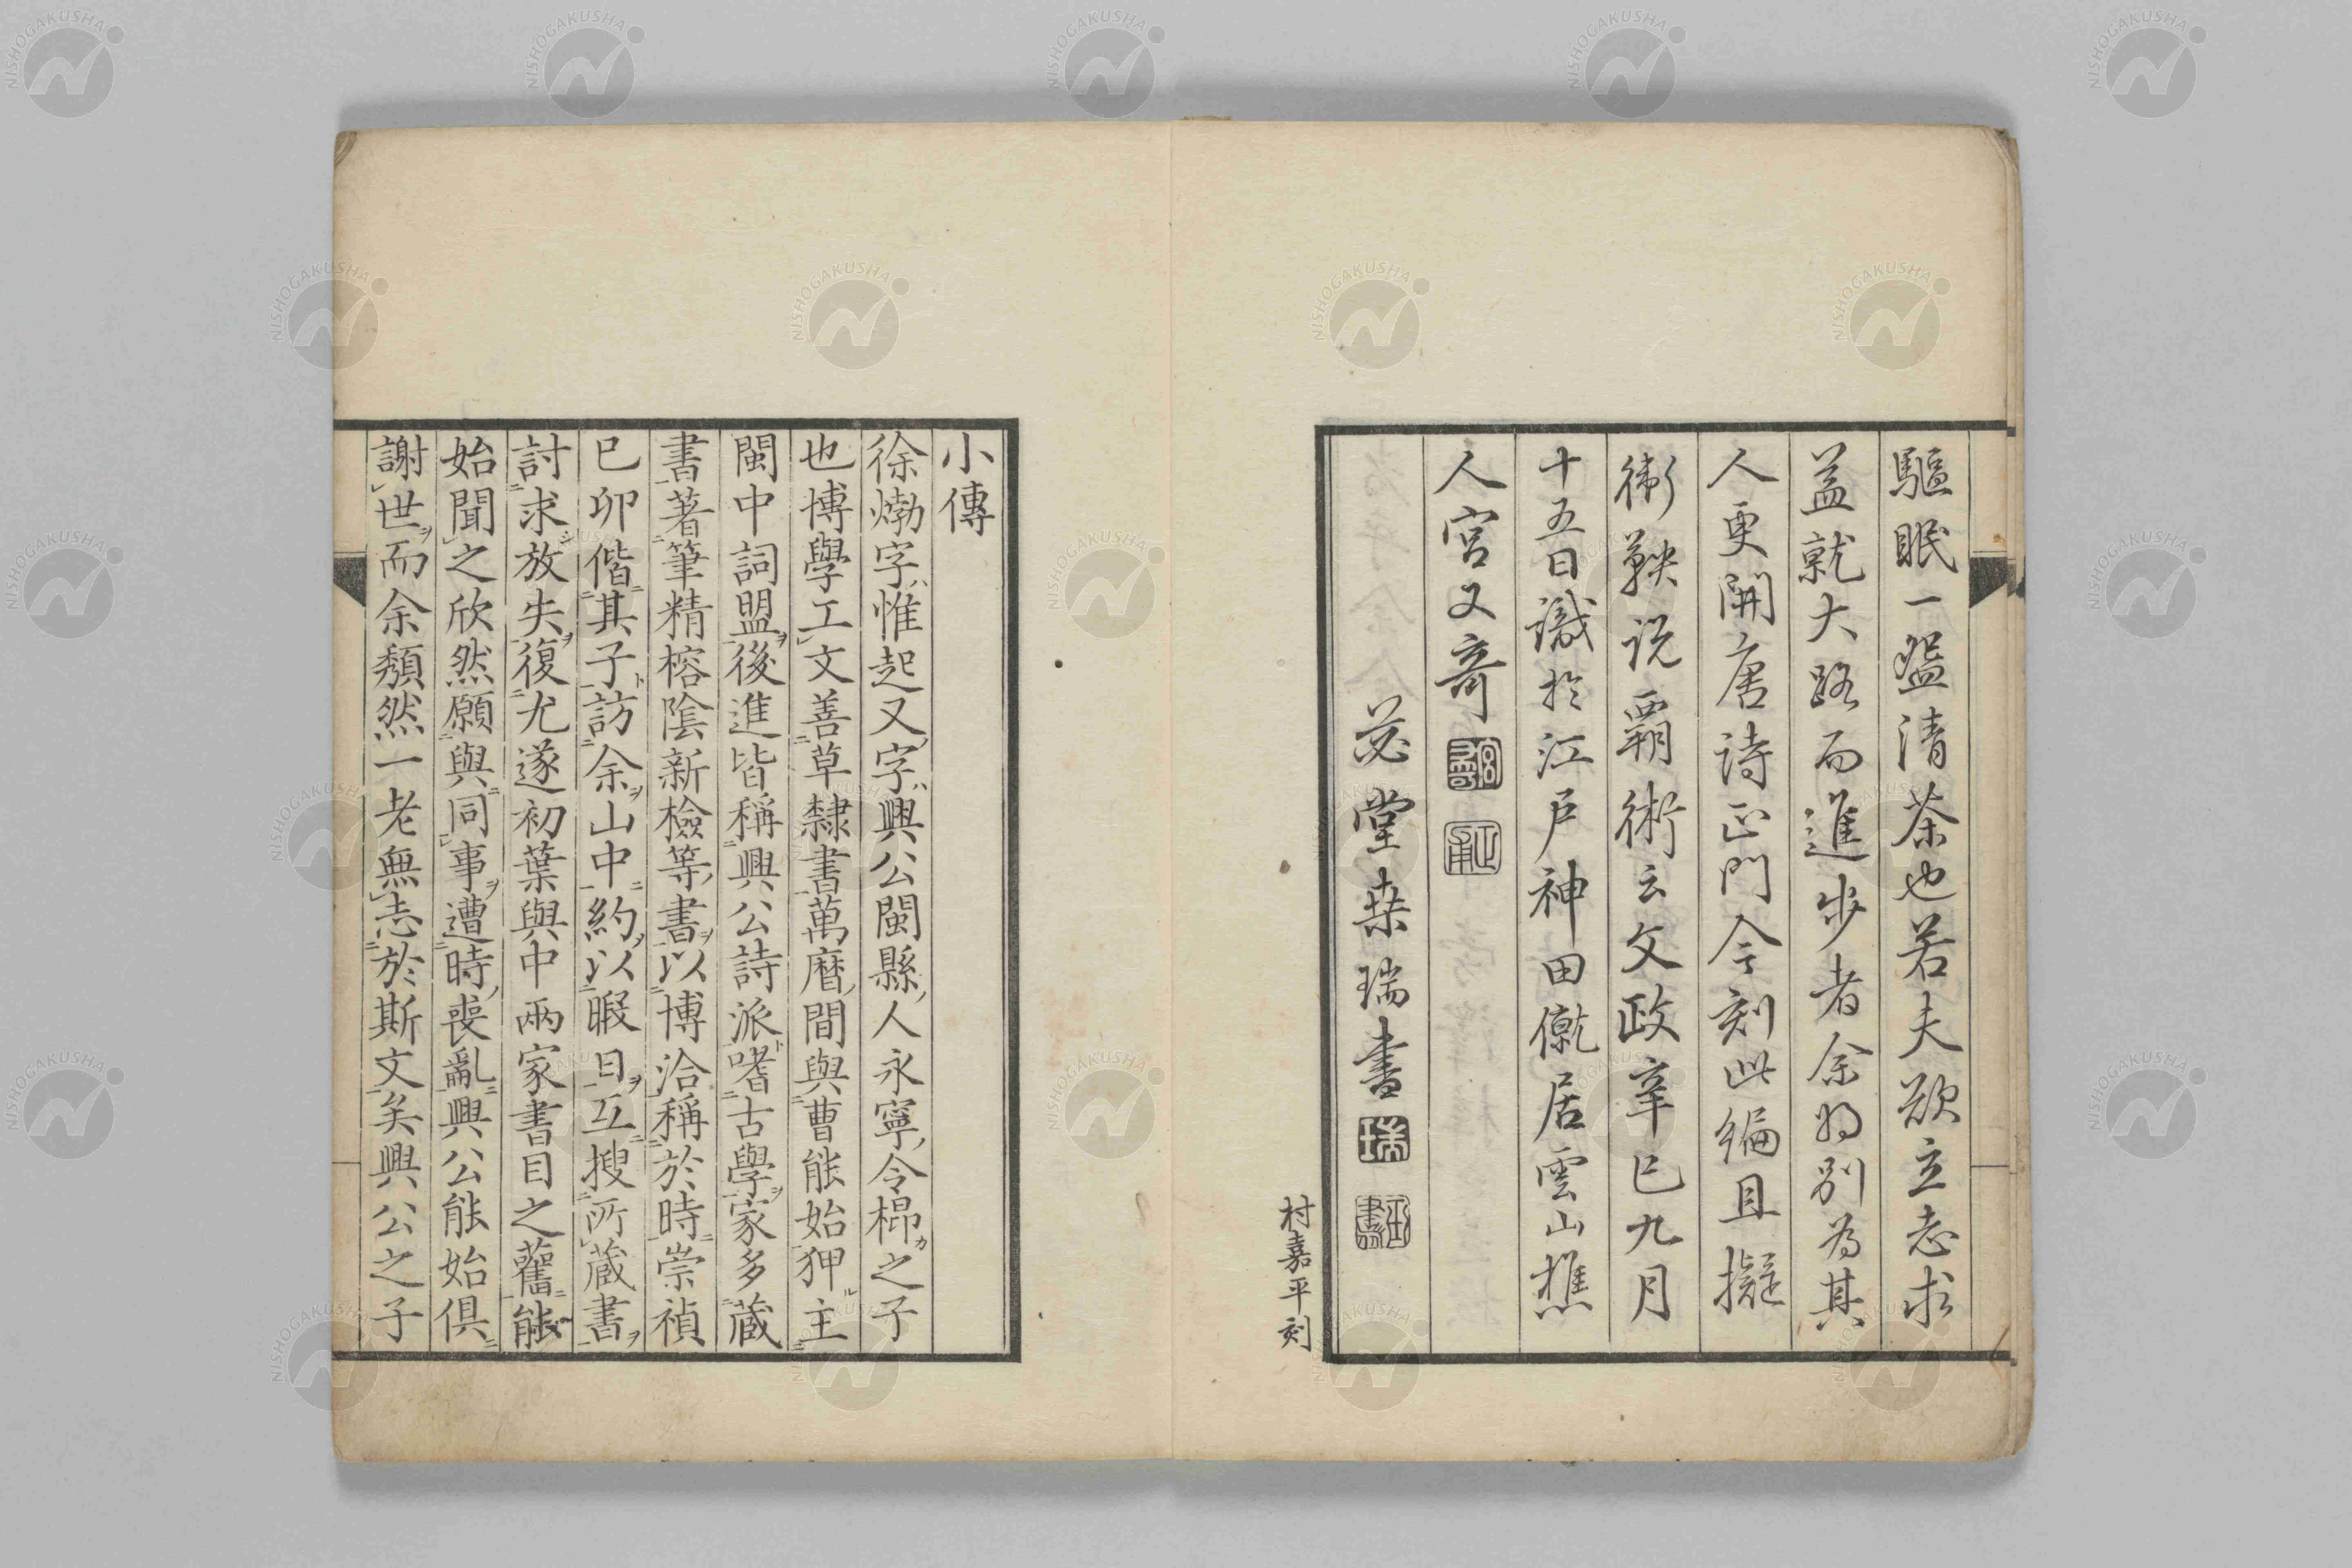 驅眠一盌清茶也若夫欲立志求
益就大路而進步者余將別為其
人更開唐詩正門今刻此編且擬
衛鞅説覇術云文政辛巳九月
十五日識於江戸神田僦居雲山樵
人宮又奇
苾堂桒瑞書
村嘉平刻
小傳
徐𤊹字惟起又字興公閩縣人永寧令㭿之子
也博學工文善草隸書萬曆間與曹能始狎主
閩中詞盟後進皆稱興公詩派嗜古學家多蔵
書著筆精榕陰新檢等書以博洽稱於時崇禎
巳卯偕其子訪余山中約以暇日互搜所蔵書
討求放失復尤遂初葉與中兩家書目之舊能
始聞之欣然願與同事遭時喪亂興公能始俱
謝世而余頽然一老無志於斯文矣興公之子
NISHOGAKUSHA